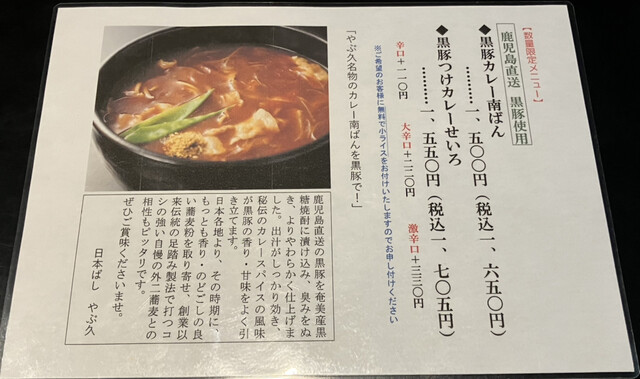 【数量限定メニュー】
鹿児島直送 黒豚使用
◆黒豚カレー南ばん
………一、五〇〇円(税込一、六五〇円)
◆黒豚つけカレーせいろ
………一、五五〇円(税込一、七〇五円)
辛口+一一〇円 大辛口+二二〇円 激辛口+三三〇円
※ご希望のお客様に無料で小ライスをお付けいたしますのでお申し付けください
「やぶ久名物のカレー南ばんを黒豚で!」
鹿児島直送の黒豚を奄美産黒
糖焼酎に漬け込み、臭みをぬ
き、よりやわらかく仕上げま
した。出汁がしっかり効き、
秘伝のカレースパイスの風味
が黒豚の香り・甘味をよく引
き立てます。
日本各地より、その時期に、
もっとも香り・のどごしの良
い蕎麦粉を取り寄せ、創業以
来伝統の足踏み製法で打つコ
シの強い自慢の外二蕎麦との
相性もピッタリです。
ぜひご賞味くださいませ。
日本ばし やぶ久